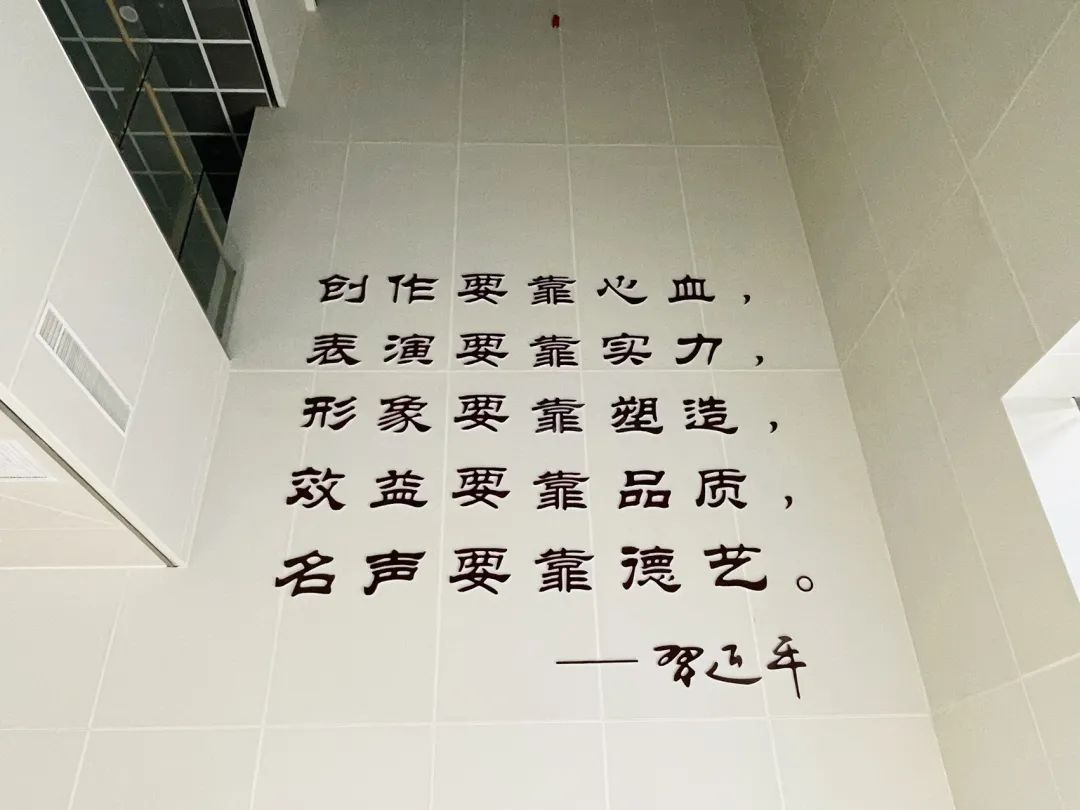 创作要靠心血，
表演要靠实力，
形象要靠塑造，
效益要靠品质，
名声要靠德艺。
——习近平